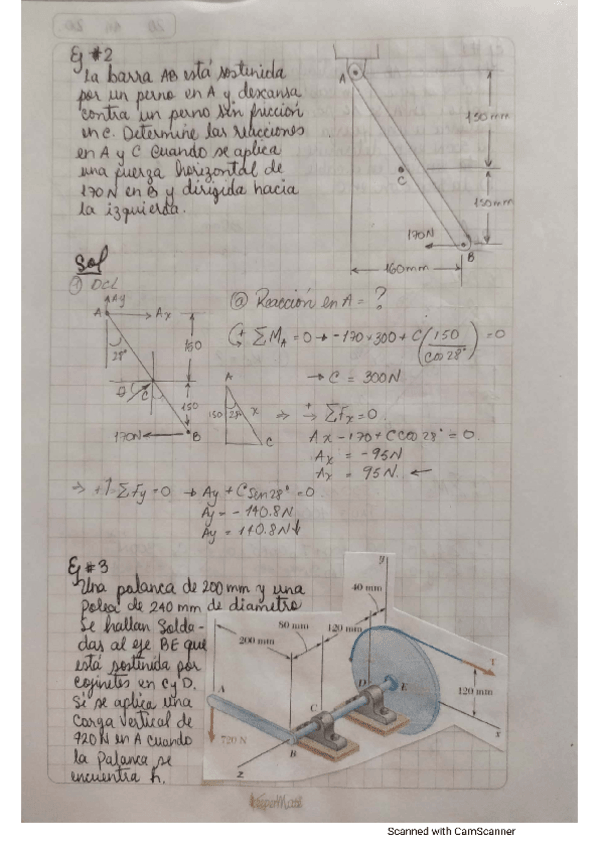 Ej #2
La barra AB está sostenida
por un perno en A y descansa
contra un perno sin fricción
en C. Determine las reacciones
en A y C cuando se aplica
una fuerza horizontal de
170 N en B y dirigida hacia
la izquierda.
A
150mm
C
150mm
170N
B
160mm
Sol
DCL
Ay
A
Ax
28°
150
C
150
170N
B
Reacción en A = ?
+ ΣMA = 0 → -170×300 + C(150/cos28°) = 0
→ C = 300N
A
150
28°
x
C
⇒ →+ ΣFx = 0.
Ax - 170 + C cos 28° = 0.
Ax = -95N
Ax = 95N. ←
⇒ +↑ ΣFy = 0 → Ay + C Sen 28° = 0
Ay = -140.8N
Ay = 140.8N↓
Ej #3
Una palanca de 200 mm y una
polea de 240 mm de diametro
se hallan solda-
das al eje BE que
está sostenida por
cojinetes en C y D.
Si se aplica una
carga vertical de
720N en A cuando
la palanca se
encuentra h.
y
40 mm
80 mm
120 mm
200 mm
A
C
D
E
T
120 mm
720 N
B
x
z
Scanned with CamScanner